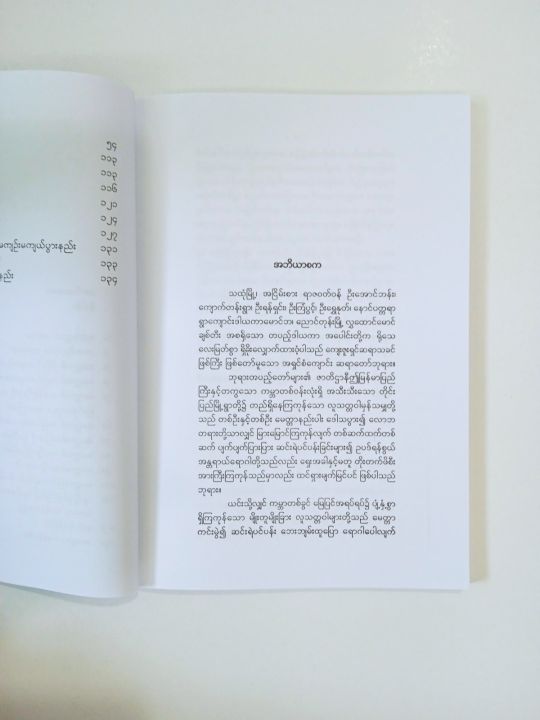 ၅၄
၁၁၃
၁၁၃
၁၁၆
၁၂၁
၁၂၄
၁၂၇
မကျဉ်းမကျယ်ပွားနည်း ၁၃၁
၁၃၃
နည်း ၁၃၄
အဘိယာစက
သထုံမြို့၊ အငြိမ်းစား ရာဇဝတ်ဝန် ဦးအောင်ဘန်း၊
ကျောက်တန်းရွာ၊ ဦးရန်ရှင်း၊ ဦးကြံပွင့်၊ ဦးရွှေနုတ်၊ နောင်ပတ္တရာ
ရွာကျောင်းဒါယကာမောင်ဘ၊ ညောင်တုန်းမြို့ လှေထောင်မောင်
ချစ်တီး အစရှိသော တပည့်ဒါယကာ အပေါင်းတို့က ရိုသေ
လေးမြတ်စွာ ရှိခိုးလျှောက်ထားခဲ့ပါသည် ကျေးဇူးရှင်ဆရာသခင်
ဖြစ်ကြီး ဖြစ်တော်မူသော အရှင်စံကျောင်း ဆရာတော်ဘုရား။
ဘုရားတပည့်တော်များ၏ ဇာတိဌာနီဤမြန်မာပြည်
ကြီးနှင့်တကွသော ကမ္ဘာတစ်ဝန်းလုံး၌ အသီးသီးသော တိုင်း
ပြည်မြို့ရွာတို့၌ တည်ရှိနေကြကုန်သော လူသတ္တဝါမှန်သမျှတို့
သည် တစ်ဦးနှင့်တစ်ဦး မေတ္တာနည်းပါး ဒေါသပွား၍ လောဘ
တရားတို့သာလျှင် မြားမြောင်ကြကုန်လျက် တစ်ဆက်ထက်တစ်
ဆက် ပျက်ပျက်ပြားပြား ဆင်းရဲပင်ပန်းခြင်းများ၍ ဥပဒ်ရန်စွယ်
အန္တရာယ်ရောဂါတို့သည်လည်း ရှေးအခါနှင့်မတူ တိုးတက်ဖိစီး
အားကြီးကြကုန်သည်မှာလည်း ထင်ရှားမျက်မြင်ပင် ဖြစ်ပါသည်
ဘုရား။
ယင်းသို့လျှင် ကမ္ဘာတစ်ခွင် မြေပြင်အရပ်ရပ်၌ ပျံ့နှံ့စွာ
ရှိကြကုန်သော မျိုးတူမျိုးခြား လူသတ္တဝါများတို့သည် မေတ္တာ
ကင်းမဲ့၍ ဆင်းရဲပင်ပန်း ဘေးဘျမ်းထူပြော ရောဂါပေါလျက်